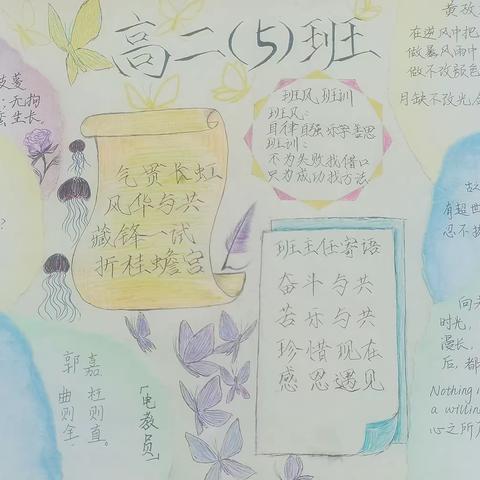 高二(5)班
在逆风中把
做暴风雨中
做不改颜色
月缺不改光
蔓生长。
班风班训
班风:
自律自强 乐学善思
班训:
不为失败找借口
只为成功找方法
气贯长虹
风华与共
藏锋一试
折桂蟾宫
班主任寄语
奋斗与共
苦乐与共
珍惜现在
感恩遇见
有超世
忍不拔
时光,
漫长,
后,都
Nothing
a willin
心之所
郭嘉
枉则直。
曲则全,
「电教员」